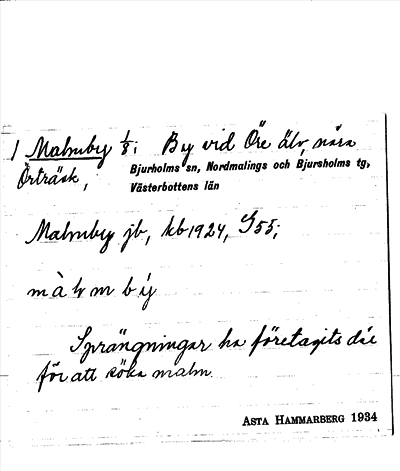 1 Malmby 1/8; By vid Öre älv, nära
Örträsk,
Bjurholms sn, Nordmalings och Bjursholms tg,
Västerbottens län
Malmby jb, kb 1924, G55;
Sprängningar ha företagits där
för att söka malm.
ASTA HAMMARBERG 1934